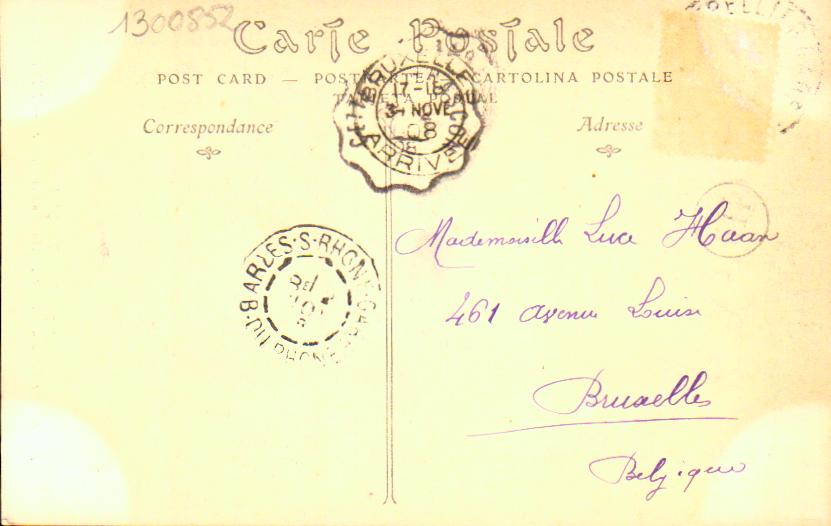 1300852
Carte Postale
POST CARD — POSTKARTE — CARTOLINA POSTALE
TARJETA POSTAL
Correspondance
Adresse
BRUXELLES
17-18
3 NOVE
08
ARRIVÉE
ARLES-S-RHONE-GARE
B DU RHONE
Mademoiselle Luce Haan
461 Avenue Louise
Bruxelles
Belgique